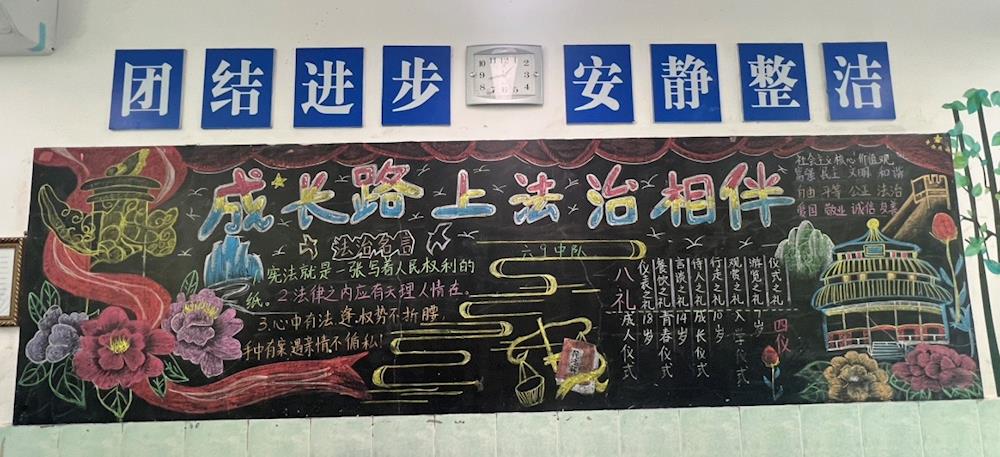 团结进步 安静整洁
成长路上法治相伴
社会主义核心价值观
富强 民主 文明 和谐
自由 平等 公正 法治
爱国 敬业 诚信 友善
法治名言
宪法就是一张写着人民权利的
纸。2.法律之内应有天理人情在。
3.心中有法,逢权势不折腰,
手中有案遇亲情不偏私!
六9中队
八礼
仪表之礼
餐饮之礼
言谈之礼
待人之礼
行走之礼
观赏之礼
游览之礼
仪式之礼
四仪
7岁入学仪式
10岁成长仪式
14岁青春仪式
18岁成人仪式